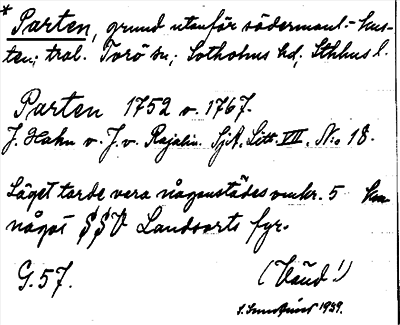 * Parten, grund utanför södermanl.-kus-
ten; trol. Torö sn; Sotholms hd, Sthlms l.
Parten 1752 o. 1767.
J. Hahn o. J. v. Rajalin. SjA, Litt. VII. No 18.
Läget torde vara någonstädes omkr. 5 km
något SSV Landsorts fyr.
G. 57. (Vänd!)
1939.